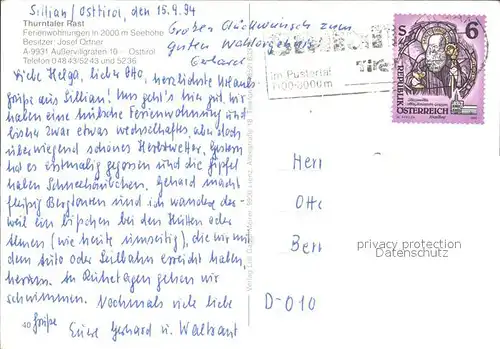 Sillian / Osttirol, den 15.9.94
Thurntaler Rast
Ferienwohnungen in 2000 m Seehöhe
Besitzer: Josef Ortner
A-9931 Außervillgraten 16 Osttirol
Telefon 04843/5243 und 5236
Großen Glückwunsch zum
guten Wahlergebnis
Gerhard
Im Pustertal
1100-3000m
S 6
REPUBLIK
ÖSTERREICH
Liebe Helga, lieber Otto, herzlichste Urlaubs-
grüße aus Sillian! Uns geht's hier gut, wir
haben eine hübsche Ferienwohnung und
bisher zwar etwas wechselhaftes, aber doch
überwiegend schönes Herbstwetter. Gestern
hat es erstmalig gegossen und die Gipfel
haben Schneehäubchen. Gerhard macht
fleißig Bergtouren und ich wandere der-
weil ein bißchen bei den Hütten oder
Almen (wie heute umseitig), die wir mit
dem Auto oder Seilbahn erreicht haben,
herum. An Ruhetagen gehen wir
schwimmen. Nochmals viele liebe
Grüße Eure Gerhard u. Waltraut
40
Herr
Otto
Ber
D-010
privacy protection
Datenschutz